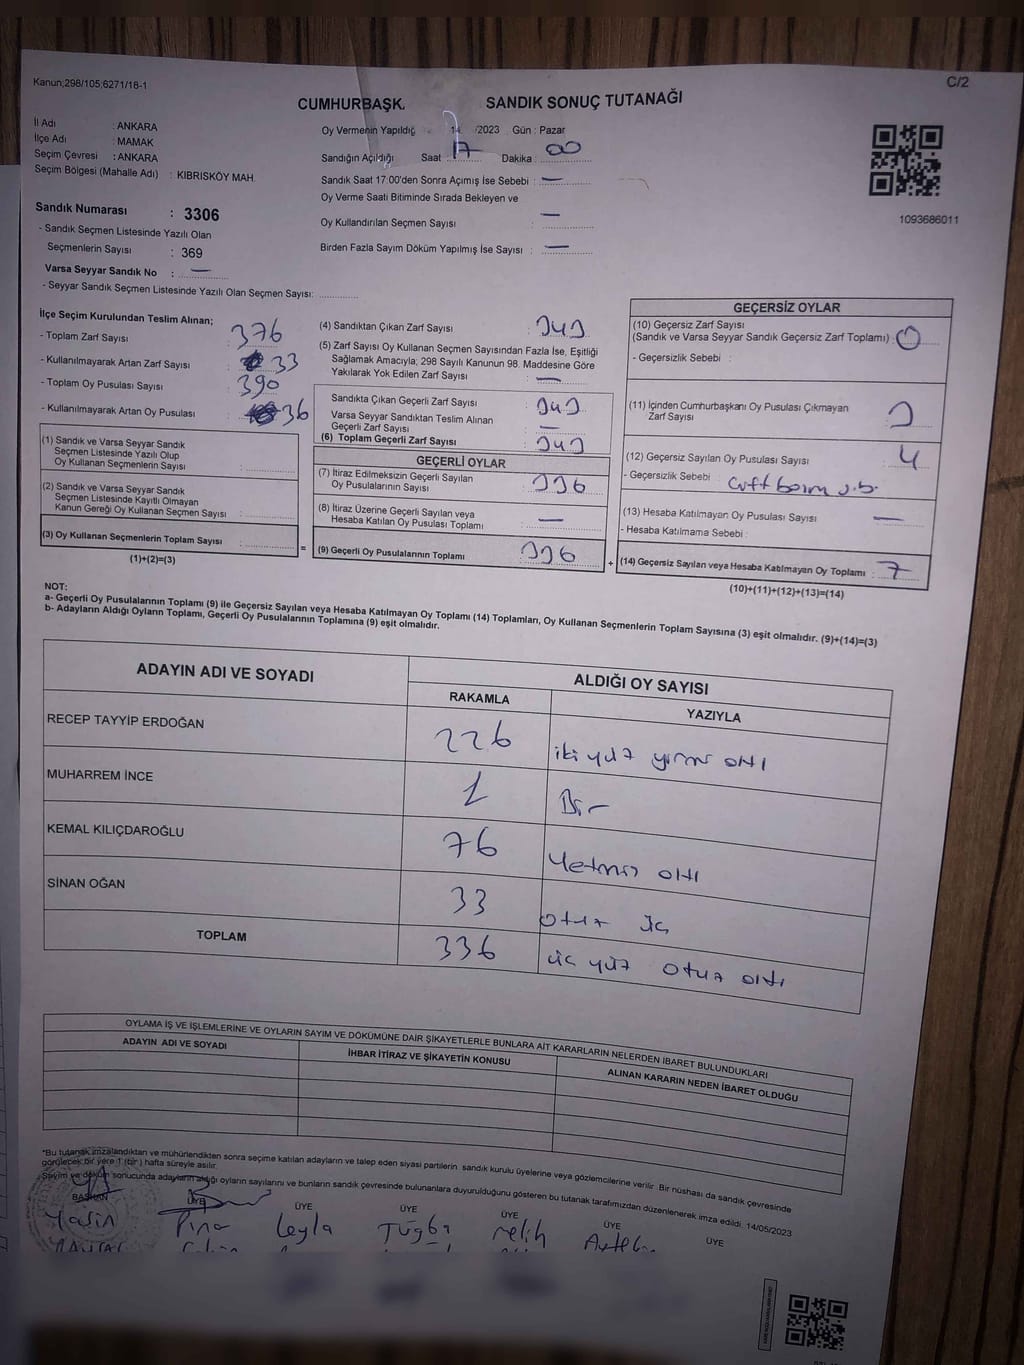 Kanun;298/105;6271/18-1
C/2
CUMHURBAŞK. SANDIK SONUÇ TUTANAĞI
İl Adı : ANKARA
İlçe Adı : MAMAK
Seçim Çevresi : ANKARA
Seçim Bölgesi (Mahalle Adı) : KIBRISKÖY MAH.
Sandık Numarası : 3306
- Sandık Seçmen Listesinde Yazılı Olan
Seçmenlerin Sayısı : 369
Varsa Seyyar Sandık No : —
- Seyyar Sandık Seçmen Listesinde Yazılı Olan Seçmen Sayısı:
Oy Vermenin Yapıldığı 14 /2023 Gün : Pazar
Sandığın Açıldığı Saat : 17 Dakika : 00
Sandık Saat 17:00'den Sonra Açımış İse Sebebi : —
Oy Verme Saati Bitiminde Sırada Bekleyen ve
Oy Kullandırılan Seçmen Sayısı : —
Birden Fazla Sayım Döküm Yapılmış İse Sayısı : —
1093686011
İlçe Seçim Kurulundan Teslim Alınan;
- Toplam Zarf Sayısı : 376
- Kullanılmayarak Artan Zarf Sayısı : 33
- Toplam Oy Pusulası Sayısı : 390
- Kullanılmayarak Artan Oy Pusulası : 36
(1) Sandık ve Varsa Seyyar Sandık
Seçmen Listesinde Yazılı Olup
Oy Kullanan Seçmenlerin Sayısı :
(2) Sandık ve Varsa Seyyar Sandık
Seçmen Listesinde Kayıtlı Olmayan
Kanun Gereği Oy Kullanan Seçmen Sayısı :
(3) Oy Kullanan Seçmenlerin Toplam Sayısı :
(1)+(2)=(3)
=
(4) Sandıktan Çıkan Zarf Sayısı : 343
(5) Zarf Sayısı Oy Kullanan Seçmen Sayısından Fazla İse, Eşitliği
Sağlamak Amacıyla; 298 Sayılı Kanunun 98. Maddesine Göre
Yakılarak Yok Edilen Zarf Sayısı : —
Sandıkta Çıkan Geçerli Zarf Sayısı : 343
Varsa Seyyar Sandıktan Teslim Alınan
Geçerli Zarf Sayısı : —
(6) Toplam Geçerli Zarf Sayısı : 343
GEÇERLİ OYLAR
(7) İtiraz Edilmeksizin Geçerli Sayılan
Oy Pusulalarının Sayısı : 336
(8) İtiraz Üzerine Geçerli Sayılan veya
Hesaba Katılan Oy Pusulası Toplamı : —
(9) Geçerli Oy Pusulalarının Toplamı : 336
+
GEÇERSİZ OYLAR
(10) Geçersiz Zarf Sayısı
(Sandık ve Varsa Seyyar Sandık Geçersiz Zarf Toplamı) : 0
- Geçersizlik Sebebi :
(11) İçinden Cumhurbaşkanı Oy Pusulası Çıkmayan
Zarf Sayısı : 3
(12) Geçersiz Sayılan Oy Pusulası Sayısı : 4
- Geçersizlik Sebebi :
(13) Hesaba Katılmayan Oy Pusulası Sayısı : —
- Hesaba Katılmama Sebebi :
(14) Geçersiz Sayılan veya Hesaba Katılmayan Oy Toplamı : 7
(10)+(11)+(12)+(13)=(14)
NOT:
a- Geçerli Oy Pusulalarının Toplamı (9) ile Geçersiz Sayılan veya Hesaba Katılmayan Oy Toplamı (14) Toplamları, Oy Kullanan Seçmenlerin Toplam Sayısına (3) eşit olmalıdır. (9)+(14)=(3)
b- Adayların Aldığı Oyların Toplamı, Geçerli Oy Pusulalarının Toplamına (9) eşit olmalıdır.
ADAYIN ADI VE SOYADI
ALDIĞI OY SAYISI
RAKAMLA YAZIYLA
RECEP TAYYİP ERDOĞAN 226 iki yüz yirmi altı
MUHARREM İNCE 1 Bir
KEMAL KILIÇDAROĞLU 76 Yetmiş altı
SİNAN OĞAN 33 otuz üç
TOPLAM 336 üç yüz otuz altı
OYLAMA İŞ VE İŞLEMLERİNE VE OYLARIN SAYIM VE DÖKÜMÜNE DAİR ŞİKAYETLERLE BUNLARA AİT KARARLARIN NELERDEN İBARET BULUNDUKLARI
ADAYIN ADI VE SOYADI
İHBAR İTİRAZ VE ŞİKAYETİN KONUSU
ALINAN KARARIN NEDEN İBARET OLDUĞU
*Bu tutanak imzalandıktan ve mühürlendikten sonra seçime katılan adayların ve talep eden siyasi partilerin sandık kurulu üyelerine veya gözlemcilerine verilir. Bir nüshası da sandık çevresinde
görülecek bir yere 1 (bir) hafta süreyle asılır.
Sayım ve döküm sonucunda adayların aldığı oyların sayılarını ve bunların sandık çevresinde bulunanlara duyurulduğunu gösteren bu tutanak tarafımızdan düzenlenerek imza edildi. 14/05/2023
BAŞKAN ÜYE ÜYE ÜYE ÜYE ÜYE ÜYE
Yasin Pınar Leyla Tuğba Melih